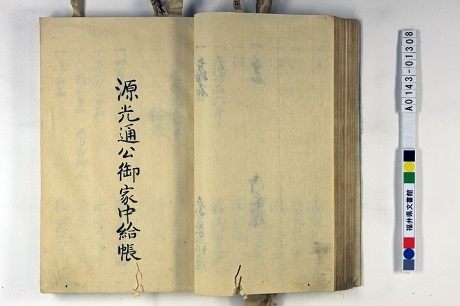 源光通公御家中給帳
A0143-01308
福井県文書館